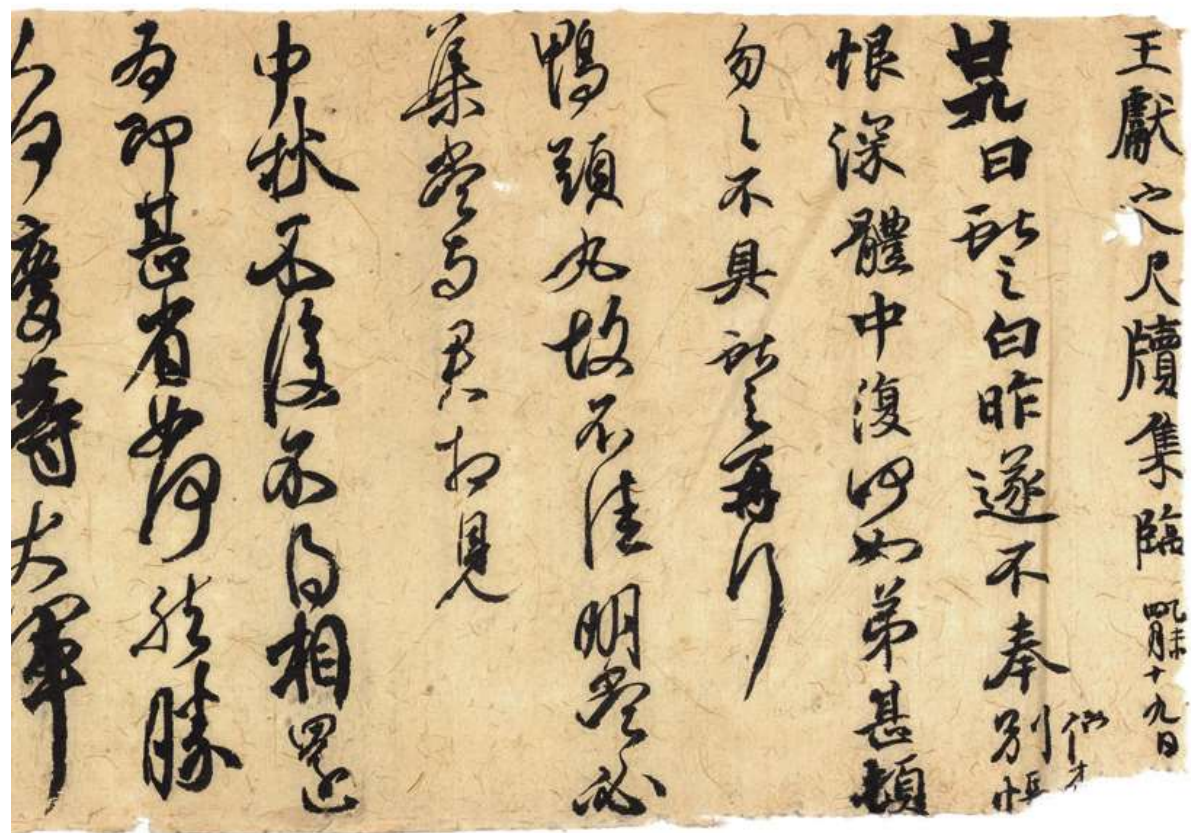 王獻之尺牘集臨 乙未四月十九日
廿九日獻之白昨遂不奉別悵
恨深體中復何如弟甚頓
勿々不具獻之再拜
鴨頭丸故不佳明當必
集當与君相見
中秋不復不得相還
為即甚省如何然勝
人何慶等大軍